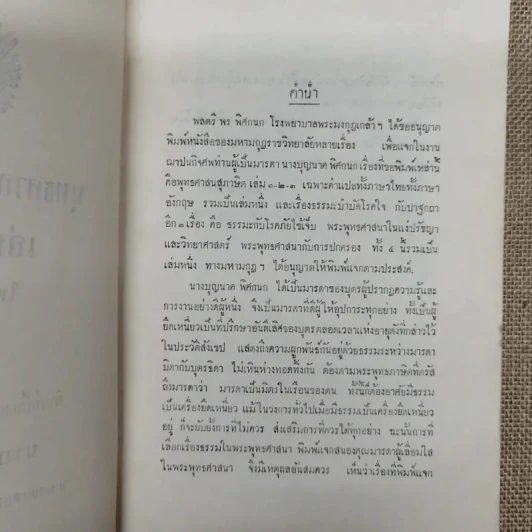 คำนำ
พลตรี พร พิศกนก โรงพยาบาลพระมงกุฎเกล้า ฯ ได้ขออนุญาต
พิมพ์หนังสือของมหามกุฎราชวิทยาลัยหลายเรื่อง เพื่อแจกในงาน
ฌาปนกิจศพท่านผู้เป็นมารดา นางบุญนาค พิศกนก เรื่องที่ขอพิมพ์เหล่านี้
คือพุทธศาสนสุภาษิต เล่ม ๑-๒-๓ เฉพาะคำแปลทั้งภาษาไทยทั้งภาษา
อังกฤษ รวมเป็นเล่มหนึ่ง และเรื่องธรรมะบำบัดโรคใจ กับปาฐกถา
อีก ๓ เรื่อง คือ ธรรมะกับโรคภัยไข้เจ็บ พระพุทธศาสนาในแง่ปรัชญา
และวิทยาศาสตร์ พระพุทธศาสนากับการปกครอง ทั้ง ๔ นี้รวมเป็น
เล่มหนึ่ง ทางมหามกุฎ ฯ ได้อนุญาตให้พิมพ์แจกตามประสงค์.
นางบุญนาค พิศกนก ได้เป็นมารดาของบุตรผู้ปรากฏความรู้และ
การงานอย่างดีผู้หนึ่ง จึงเป็นมารดาที่ดีผู้ให้อุปการะทุกอย่าง ทั้งเป็นผู้
ยึดเหนี่ยวเป็นที่ปรึกษาอันดีเลิศของบุตรตลอดเวลาแห่งอายุดังที่กล่าวไว้
ในประวัติสังเขป แสดงถึงความผูกพันธ์กันอยู่ด้วยธรรมระหว่างมารดา
บิดากับบุตรธิดา ไม่เหินห่างทอดทิ้งกัน ต้องตามพระพุทธภาษิตที่ตรัส
ถึงมารดาว่า มารดาเป็นมิตรในเรือนของตน ทั้งนี้ก็ต้องอาศัยมีธรรม
เป็นเครื่องยึดเหนี่ยว แม้ในวงการทั่วไปเมื่อมีธรรมเป็นเครื่องยึดเหนี่ยว
อยู่ ก็จะยับยั้งการที่ไม่ควร ส่งเสริมการที่ควรได้ทุกอย่าง ฉะนั้นการที่
เลือกเรื่องธรรมในพระพุทธศาสนา พิมพ์แจกสนองคุณมารดาผู้เลื่อมใส
ในพระพุทธศาสนา จึงมีเหตุผลอันสมควร เห็นว่าเรื่องที่พิมพ์แจก